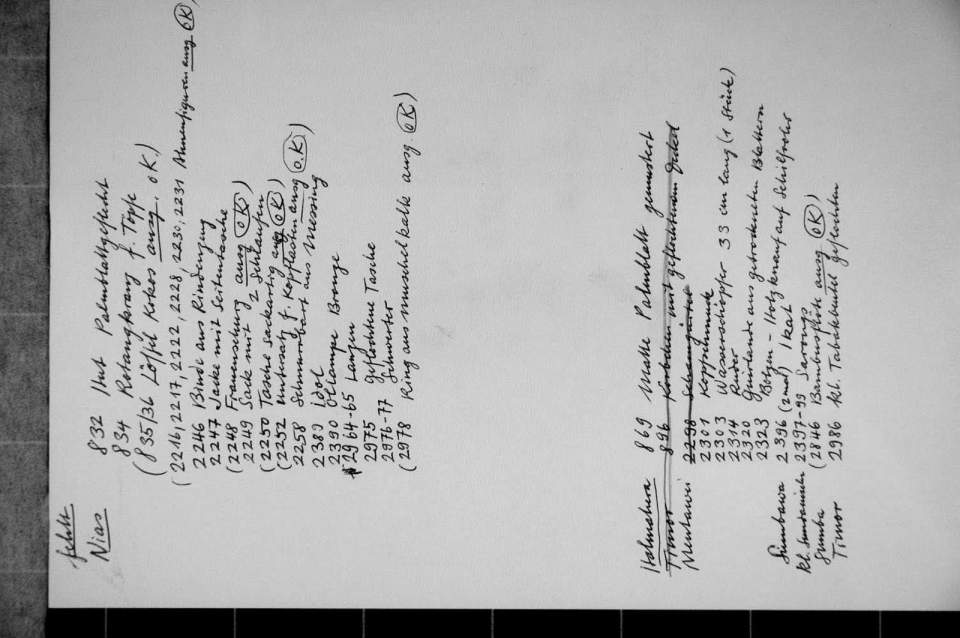 fehlt
Nias
832 Hut Palmblattgeflecht
834 Rotangkranz f. Töpfe
(835/36 Löffel Kokos ausg. OK.)
(2216, 2217, 2222, 2228, 2230, 2231 Ahnenfiguren ausg OK)
2246 Binde aus Rindenzeug
2247 Jacke mit Seitentasche
(2248 Frauenschurz ausg OK)
2249 Sack mit 2 Schlaufen
(2250 Tasche sackartig ausg OK)
(2252 Untersatz f. Kopflasten ausg O.K)
2258 Schnurrbart aus Messing
2389 Idol
2390 Öllampe Bronze
2964-65 Lanzen
2975 Geflochtene Tasche
2976-77 Schwerter
(2978 Ring aus Muschelkalk ausg OK)
Halmahera 869 Matte Palmblatt gemustert
Timor 896 Körbchen mit geflochtenem Deckel
Mentawei 2298 Schamgürtel
2301 Kopfschmuck
2303 Wasserschöpfer 33 cm lang (1 Stück)
2314 Ruder
2320 Guirlande aus getrockneten Blättern
2323 Bolzen - Holzknauf auf Schilfrohr
Sumbawa 2396 (2mal) Ikat
kl. Sundainseln 2397-99 Sarongs
Sumba (2846 Bambusflöte ausg OK)
Timor 2986 kl. Tabakbeutel geflochten